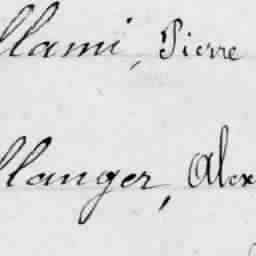 llami, Pierre
llanger, Alex